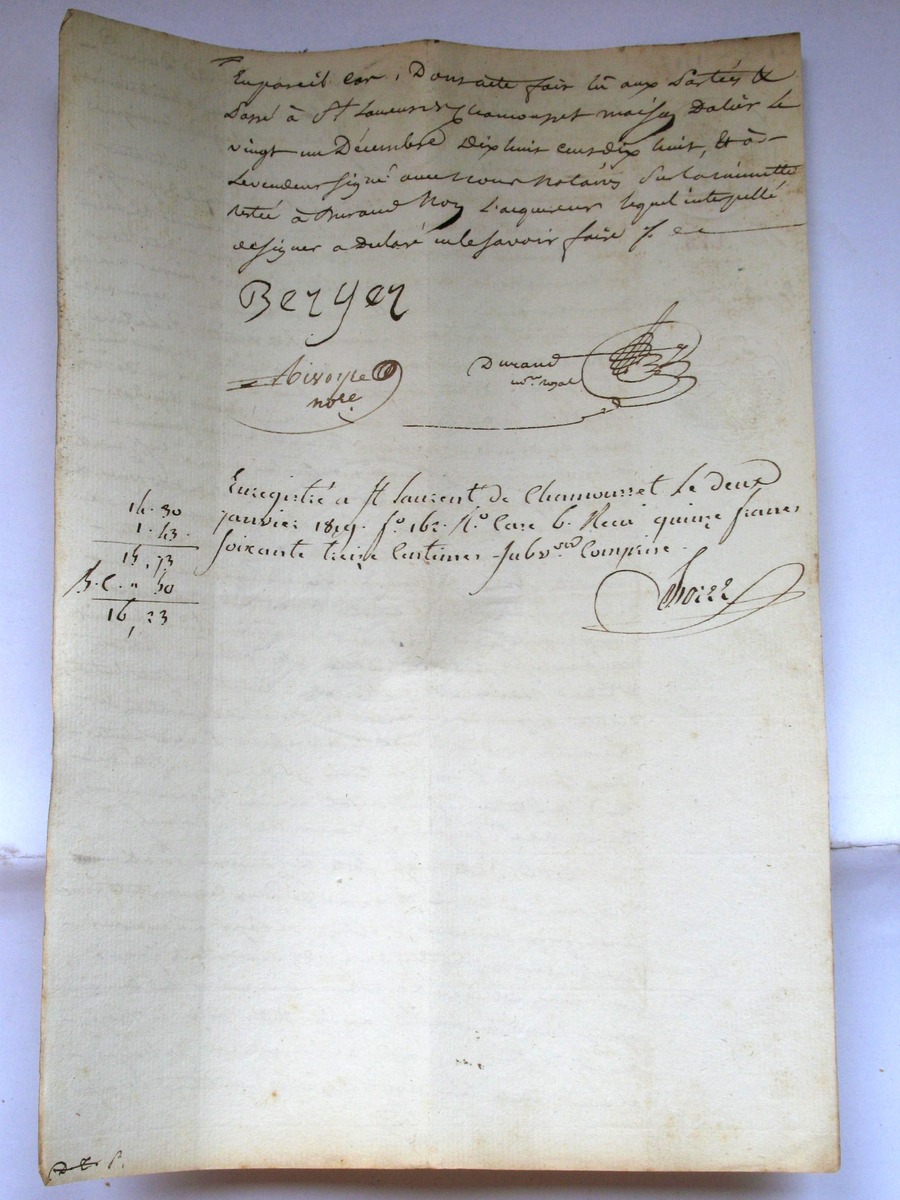 En pareil cas, Dont acte fait lû aux Parties &
Passé à St Laurent de Chamousset maison Dalier Le
vingt un Décembre Dix huit cent dix huit, Et a
Le vendeur signé avec nous Notaires Sur la minutte
restée à Durand Non L'acquereur lequel interpellé
de signer a Declaré ne le Savoir faire
Berger
nore
Durand
nre. royal
Enregistré a St Laurent de Chamousset Le deux
janvier 1819. fo. 162. Ro Case 6. Recu quinze francs
soixante treize Centimes subv.on Comprise.
14.30
1.43.
15,73
50
16,23